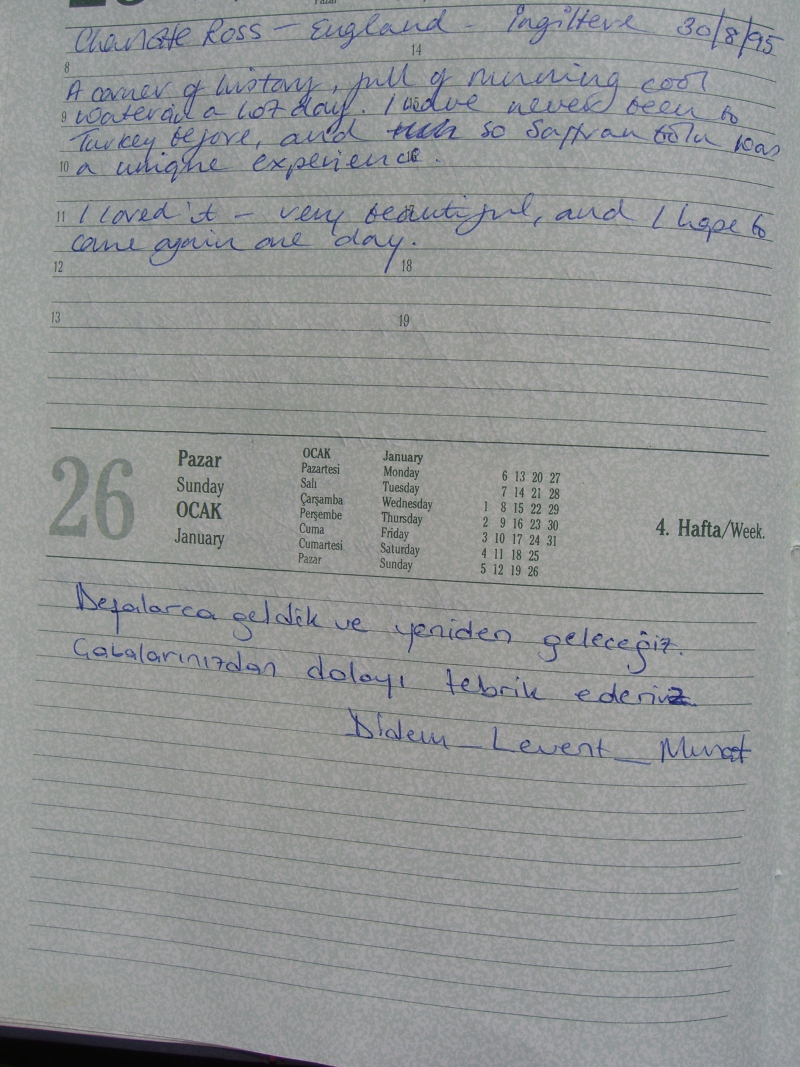 Charlotte Ross - England - İngiltere 30/8/95
8 14
A corner of history, full of running cool
9 water on a hot day. I have never been to
Turkey before, and so Saffran bolu was
10 a unique experience.
11 I loved it - very beautiful, and I hope to
come again one day.
12 18
13 19
26
Pazar
Sunday
OCAK
January
OCAK January
Pazartesi Monday 6 13 20 27
Salı Tuesday 7 14 21 28
Çarşamba Wednesday 1 8 15 22 29
Perşembe Thursday 2 9 16 23 30
Cuma Friday 3 10 17 24 31
Cumartesi Saturday 4 11 18 25
Pazar Sunday 5 12 19 26
4. Hafta/Week.
Defalarca geldik ve yeniden geleceğiz.
Çabalarınızdan dolayı tebrik ederiz.
Didem - Levent - Murat